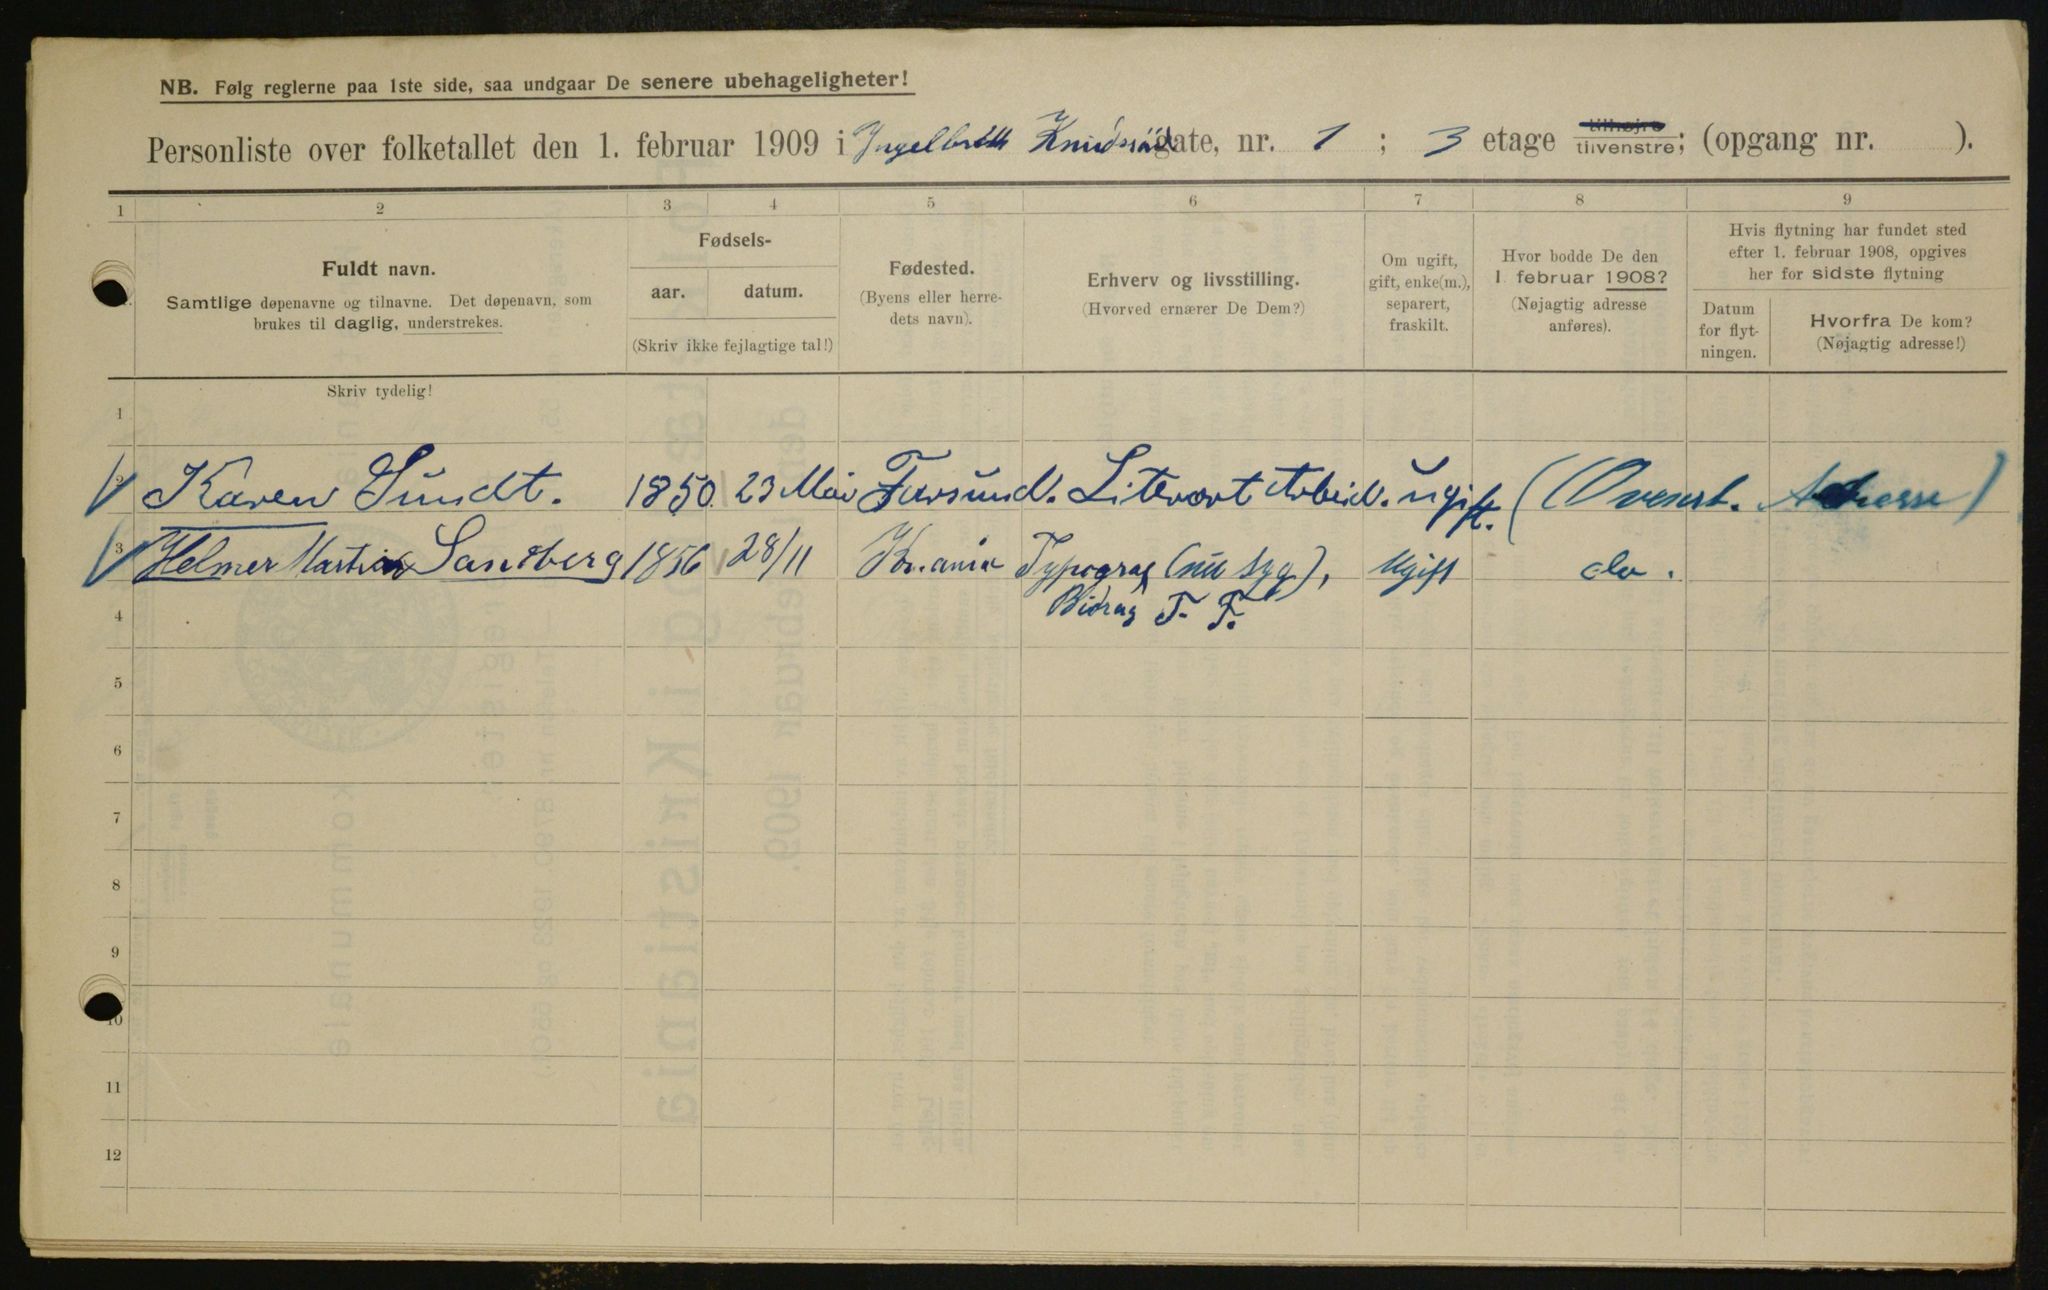 NB. Følg reglerne paa 1ste side, saa undgaar De senere ubehageligheter!
Personliste over folketallet den 1. februar 1909 i Ingelbrett Knudssöns gate, nr. 1 ; 3 etage tilhøjre tilvenstre; (opgang nr. ).
1 2 3 4 5 6 7 8 9
Fuldt navn.
Samtlige døpenavne og tilnavne. Det døpenavn, som
brukes til daglig, understrekes.
Skriv tydelig!
Fødsels-
aar. datum.
(Skriv ikke fejlagtige tal!)
Fødested.
(Byens eller herre-
dets navn).
Erhverv og livsstilling.
(Hvorved ernærer De Dem?)
Om ugift,
gift, enke(m.),
separert,
fraskilt.
Hvor bodde De den
1. februar 1908?
(Nøjagtig adresse
anføres).
Hvis flytning har fundet sted
efter 1. februar 1908, opgives
her for sidste flytning
Datum
for flyt-
ningen.
Hvorfra De kom?
(Nøjagtig adresse!)
1
2 Karen Sundt. 1850. 23 Mai Farsund. Literært Arbeid. ugift. (Ovenst. Adresse)
3 Helmer Martin Sandberg 1856 28/11 Kr.ania Typograf (nu syg), Ugift do.
4 Bidrag T. F.
5
6
7
8
9
10
11
12